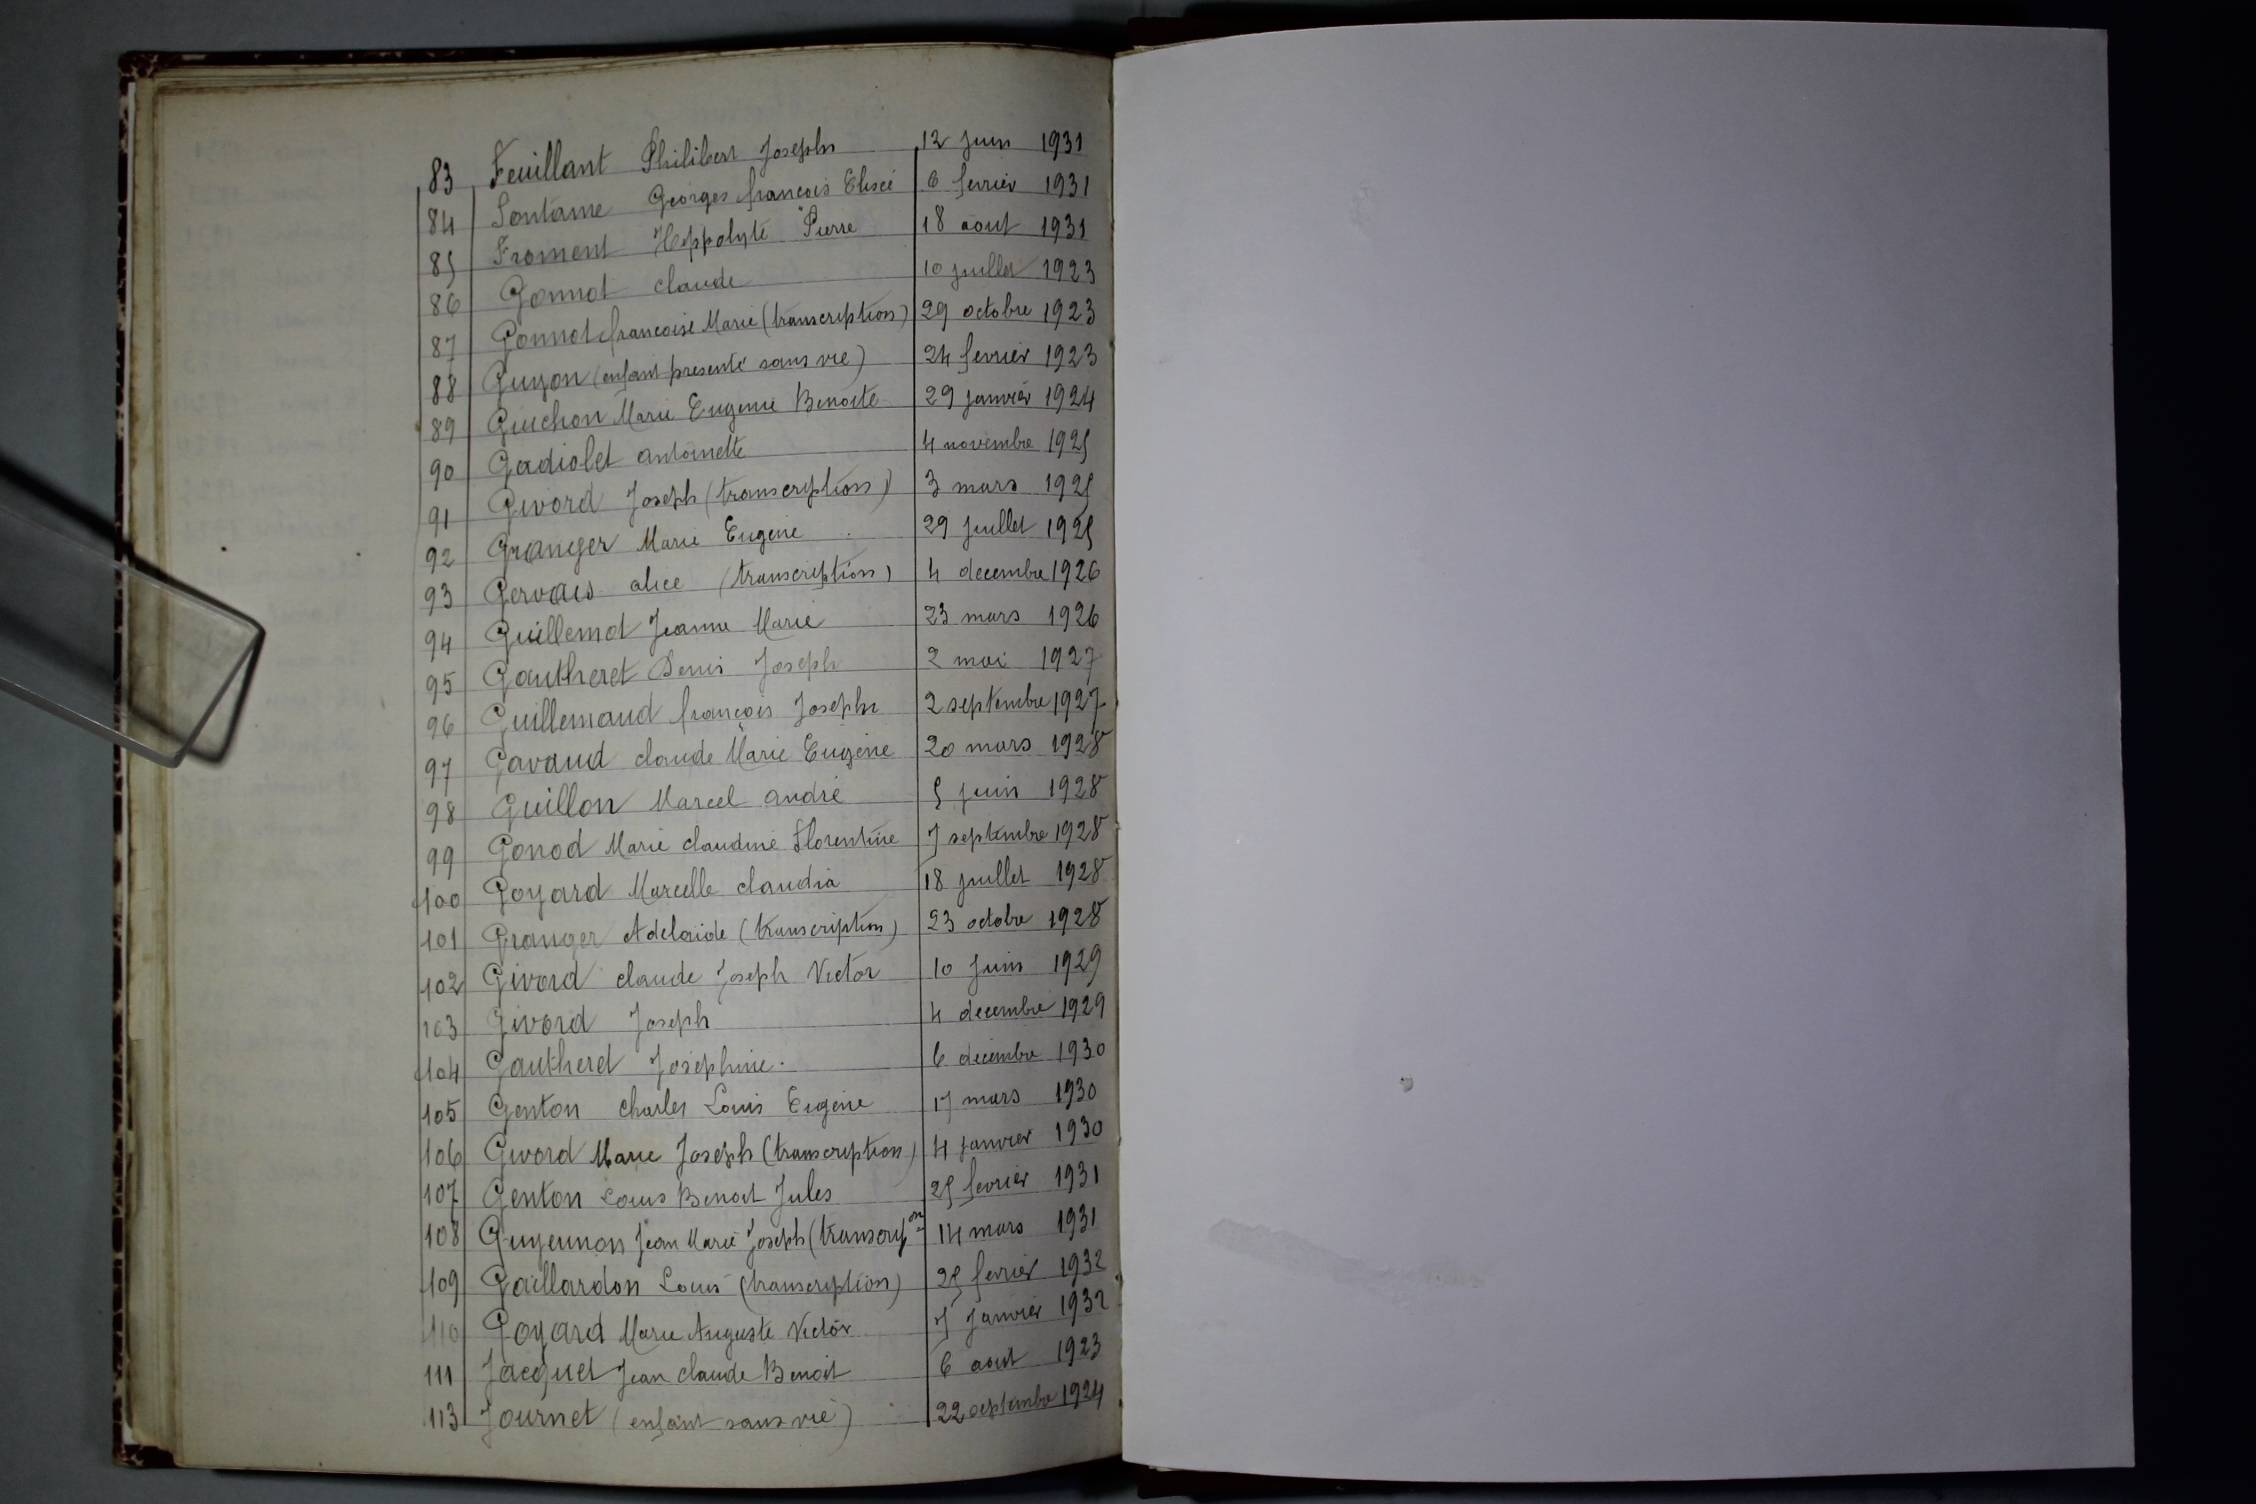 83 Feuillant Philibert Joseph 12 juin 1931
84 Fontaine Georges françois Elisée 6 fevrier 1931
85 Froment Hippolyte Pierre 18 aout 1931
86 Gonnot claude 10 juillet 1923
87 Gonnot francoise Marie (transcription) 29 octobre 1923
88 Guyon (enfant presenté sans vie) 24 fevrier 1923
89 Guichon Marie Eugenie Benoite 29 janvier 1924
90 Gadiolet antoinette 4 novembre 1925
91 Givord Joseph (transcription) 3 mars 1925
92 Granger Marie Eugenie 29 juillet 1925
93 Gervais alice (transcription) 4 decembre 1926
94 Guillemot Jeanne Marie 23 mars 1926
95 Gautheret Denis Joseph 2 mai 1927
96 Guillemaud françois Joseph 2 septembre 1927
97 Gavaud claude Marie Eugène 20 mars 1928
98 Guillon Marcel andré 5 juin 1928
99 Gonod Marie claudine Florentine 7 septembre 1928
100 Goyard Marcelle claudia 18 juillet 1928
101 Granger Adelaide (transcription) 23 octobre 1928
102 Givord claude Joseph Victor 10 juin 1929
103 Givord Joseph 4 decembre 1929
104 Gautheret Joséphine. 6 decembre 1930
105 Genton charles Louis Eugène 17 mars 1930
106 Givord Marie Joseph (transcription) 4 janvier 1930
107 Genton Louis Benoit Jules 25 fevrier 1931
108 Guyennon Jean Marie Joseph (transcrip on 14 mars 1931
109 Gaillardon Louis (transcription) 25 fevrier 1932
110 Goyard Marie Auguste Victor 7 janvier 1932
111 Jacquet Jean claude Benoit 6 aout 1923
113 Journet (enfant sans vie) 22 septembre 1924